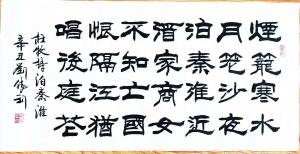 煙籠寒水
月笼沙夜
泊秦淮近
酒家商女
不知亡國
恨隔江猶
唱後庭花
杜牧詩泊秦淮
辛丑